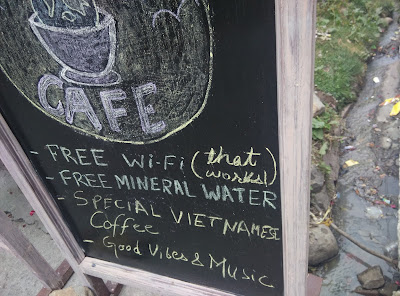 CAFE
- FREE Wi-Fi (that works!)
- FREE MINERAL WATER
- SPECIAL VIETNAMESE
Coffee
- Good Vibes & Music